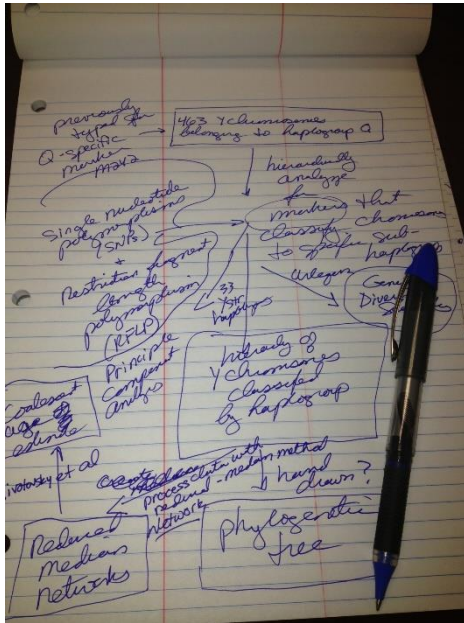 previously
typed for
Q-specific
marker
M242
463 Y chromosomes
belonging to haplogroup Q
hierarchically
analyze
for
markers that
classify chromosomes
to specific sub-
haplogroups
Single nucleotide
polymorphisms
(SNPs)
+
Restriction fragment
length
polymorphism
(RFLP)
33
haplogroups
Arlequin
Diversity
Principle
component
analysis
hierarchy of
Y chromosomes
classified
by haplogroup
Coalescent
age
et al
process data with
reduced-median method
network
hand
drawn?
Reduced
Median
networks
phylogenetic
tree